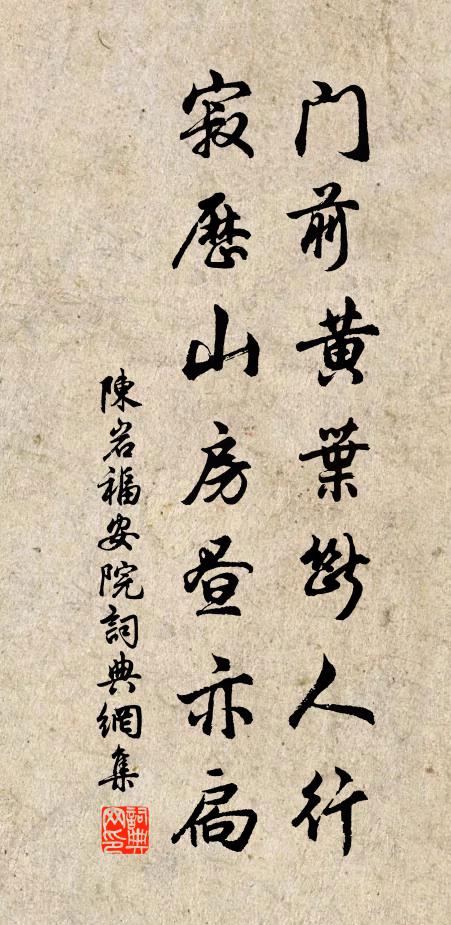 門前黃葉斷人行
寂歷山房晝亦扃
陳岩福安院詞典網集
詞典网印